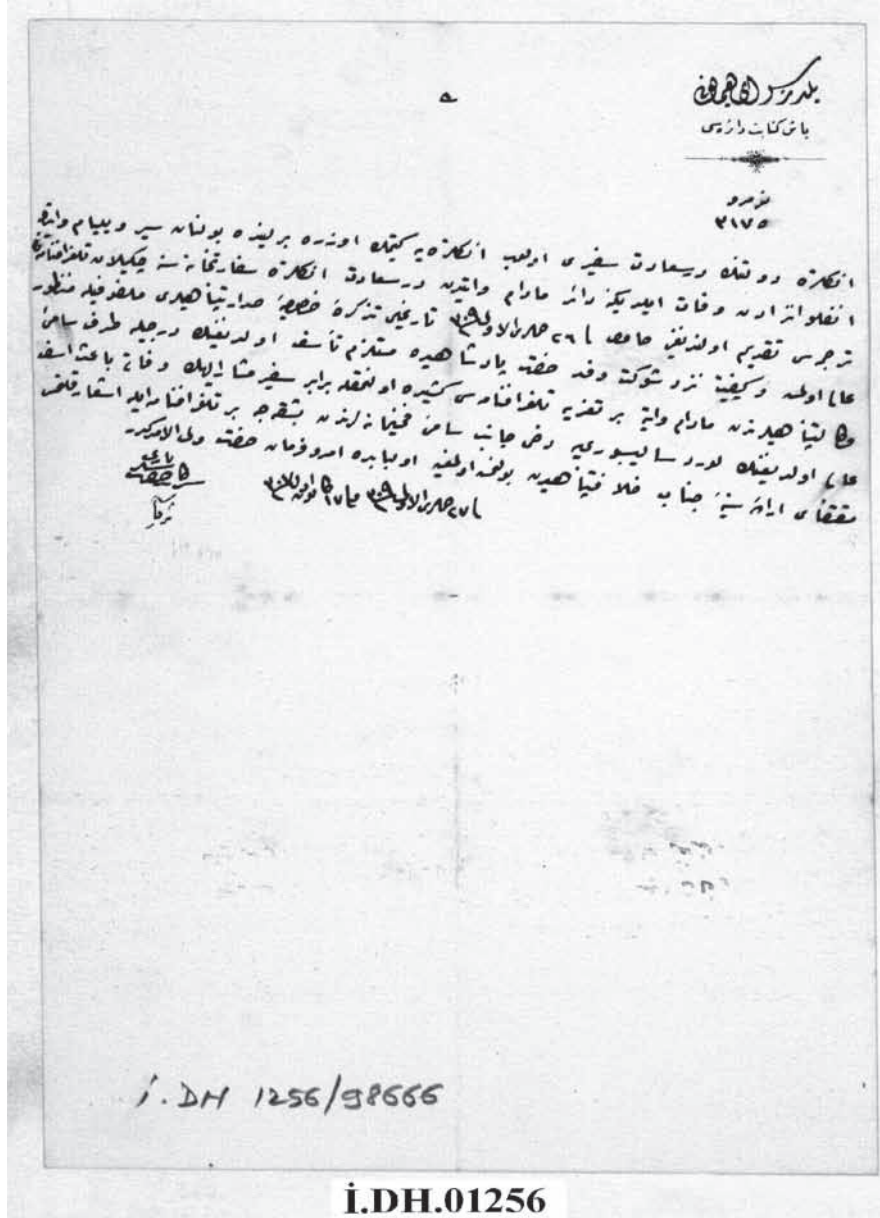 یلدیز سرای همایونی
باش کتابت دائره سی
نومرو
٣١٧٥
انکلتره دولتنك درسعادت سفیری اولوب انکلتره یه کیتمك اوزره برلینده بولنان سیر ویلیام وایت
انفلوانزادن وفات ایلدیکنه دائر مادام وایتدن درسعادت انکلتره سفارتخانه سنه چکیلان تلغرافنامه نك
ترجمه سی تقدیم اولندیغنی حاوی ٢٦ جمادی الاولی ٣٠٩ تاریخلی تذکره خصوصیه صدارتپناهیلری ملفوفیله منظور
عالی اولمش وکیفیت نزد شوکتوفد حضرت پادشاهیده مستلزم تأسف اولدیغنك درجیله طرف سامئ
وکالتپناهیلرندن مادام وایته بر تعزیه تلغرافنامه سی کشیده اولنمقله برابر سفیر مشار الیهك وفاتی باعث اسف
عالی اولدیغنك لورد سالیسبوری یه دخی جانب سامئ فخیمانه لرندن بشقه جه بر تلغرافنامه ایله اشعار قلنمسی
مقتضای اراده سنیه جناب خلافتپناهیدن بولنمش اولمغله اولبابده امر وفرمان حضرت ولی الامرکدر
فی ٢٧ جمادی الاولی ٣٠٩ فی ١٧ کانون اول ٣٠٧
ثریا
İ.DH 1256/98666
İ.DH.01256